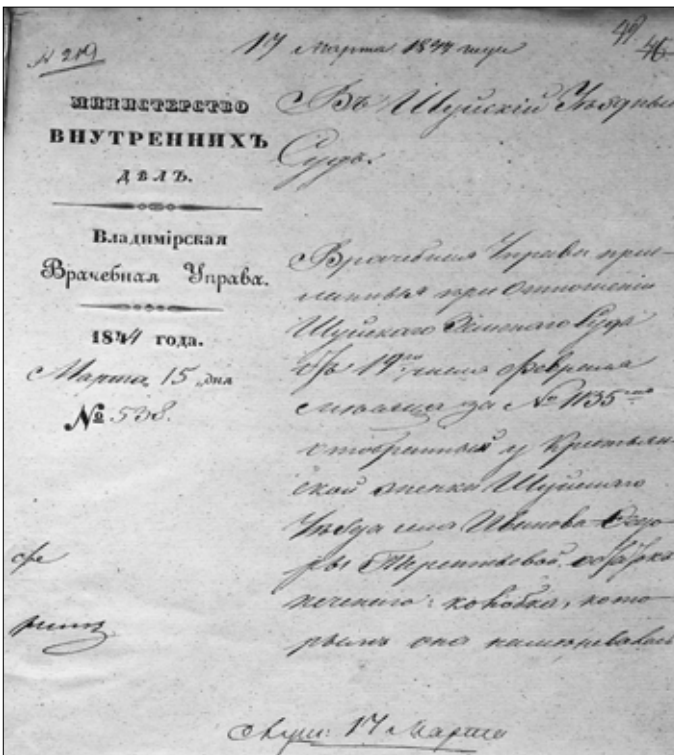 № 219
17 Марта 1844 года
МИНИСТЕРСТВО
ВНУТРЕННИХЪ
ДѢЛЪ.
Владимірская
Врачебная Управа.
1844 года.
Марта 15 дня
№ 538.
Въ Шуйскій Уѣздный
Судъ.
Врачебная Управа при-
при Отношеніи
Шуйскаго Земскаго Суда
19го Февраля
мѣсяца за № 1135
отобранный у Крестьян-
ской Шуйскаго
Уѣзда села Иванова Ѳедо-
ры Терентьевой
коробка, кото-
рымъ она намѣревалась
17 Марта